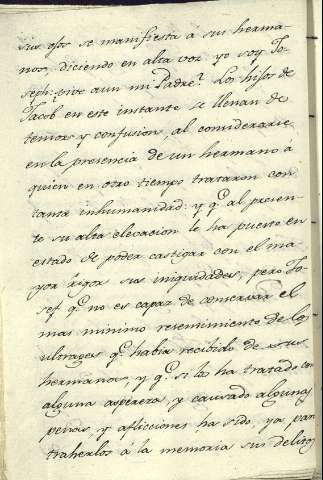 sus ojos se manifiesta a sus herma
nos, diciendo en alta voz yo soy Jo
seph: vive aun mi Padre? Los hijos de
Jacob en este instante se llenan de
temor y confusion, al considerarse
en la presencia de un hermano à
quien en otro tiempo trataron con
tanta inhumanidad: y qe al presen
te su alta elevacion le ha puesto en
estado de poder castigar con el ma
yor rigor sus iniquidades, pero Jo
sef qe no es capaz de conservar el
mas minimo resentimiento de los
ultrages qe habia recibido de sus
hermanos, y qe si los ha tratado con
alguna aspereza, y causado algunas
penas, y aflicciones ha sido, ya para
traherlos á la memoria sus delitos